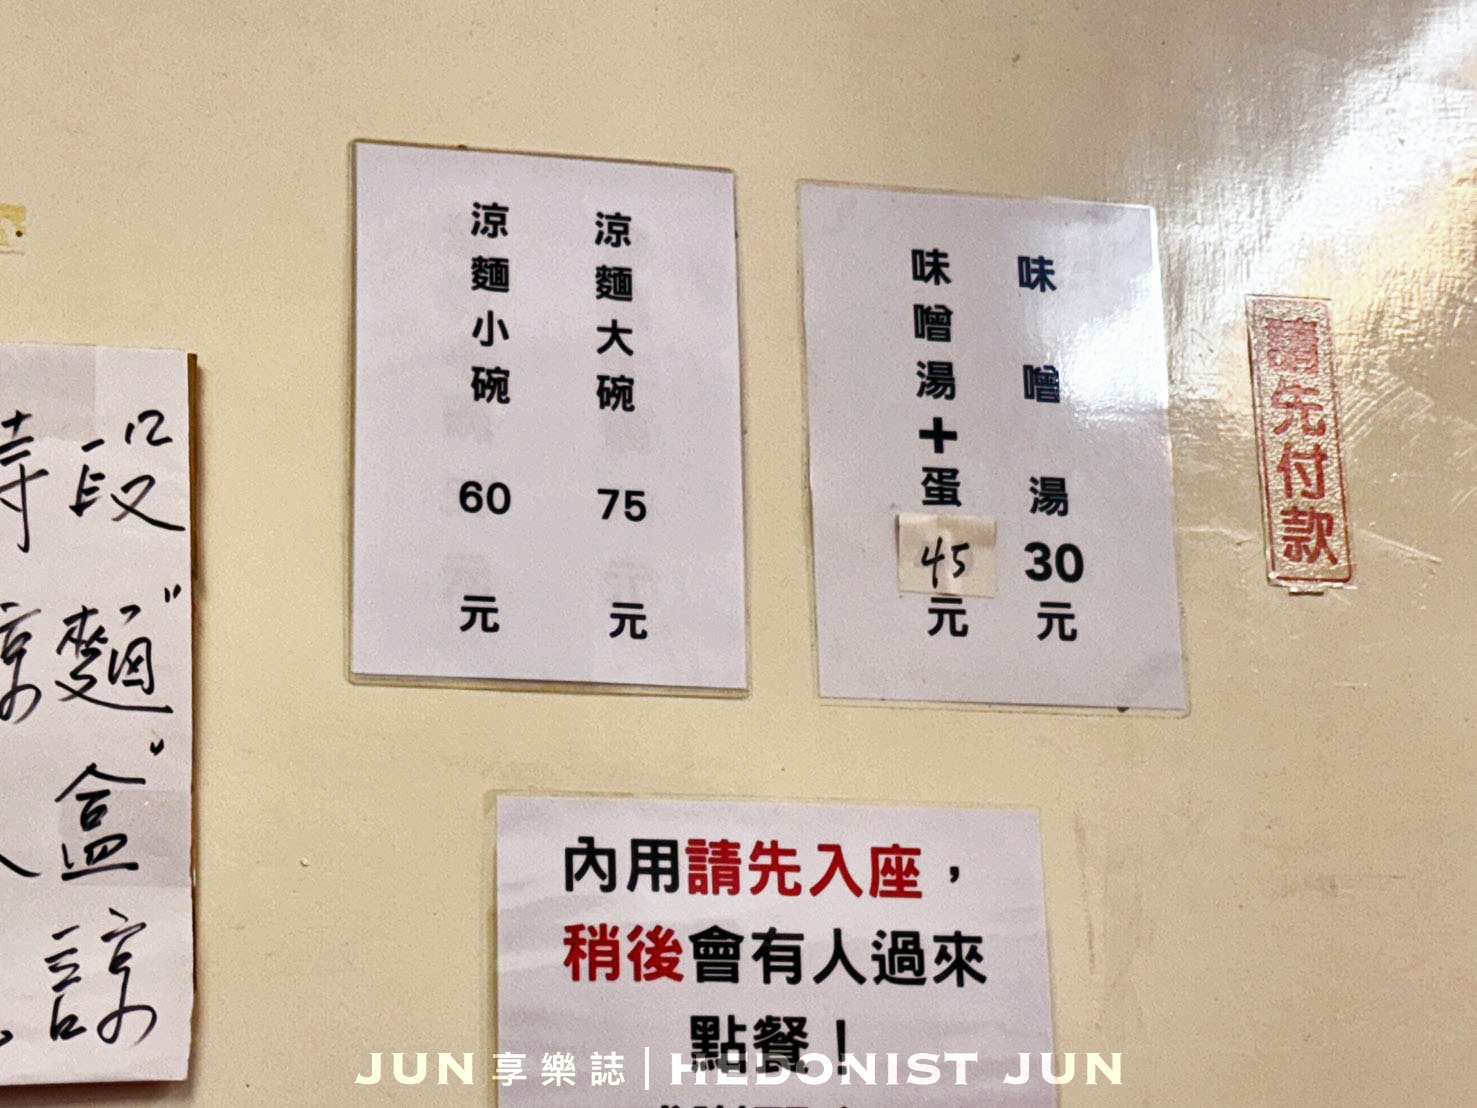 涼麵大碗 75 元
涼麵小碗 60 元
味噌湯 30 元
味噌湯+蛋 45 元
請先付款
時段
涼麵"
盒"
諒
內用請先入座，
稍後會有人過來
點餐！
JUN享樂誌|HEDONIST JUN